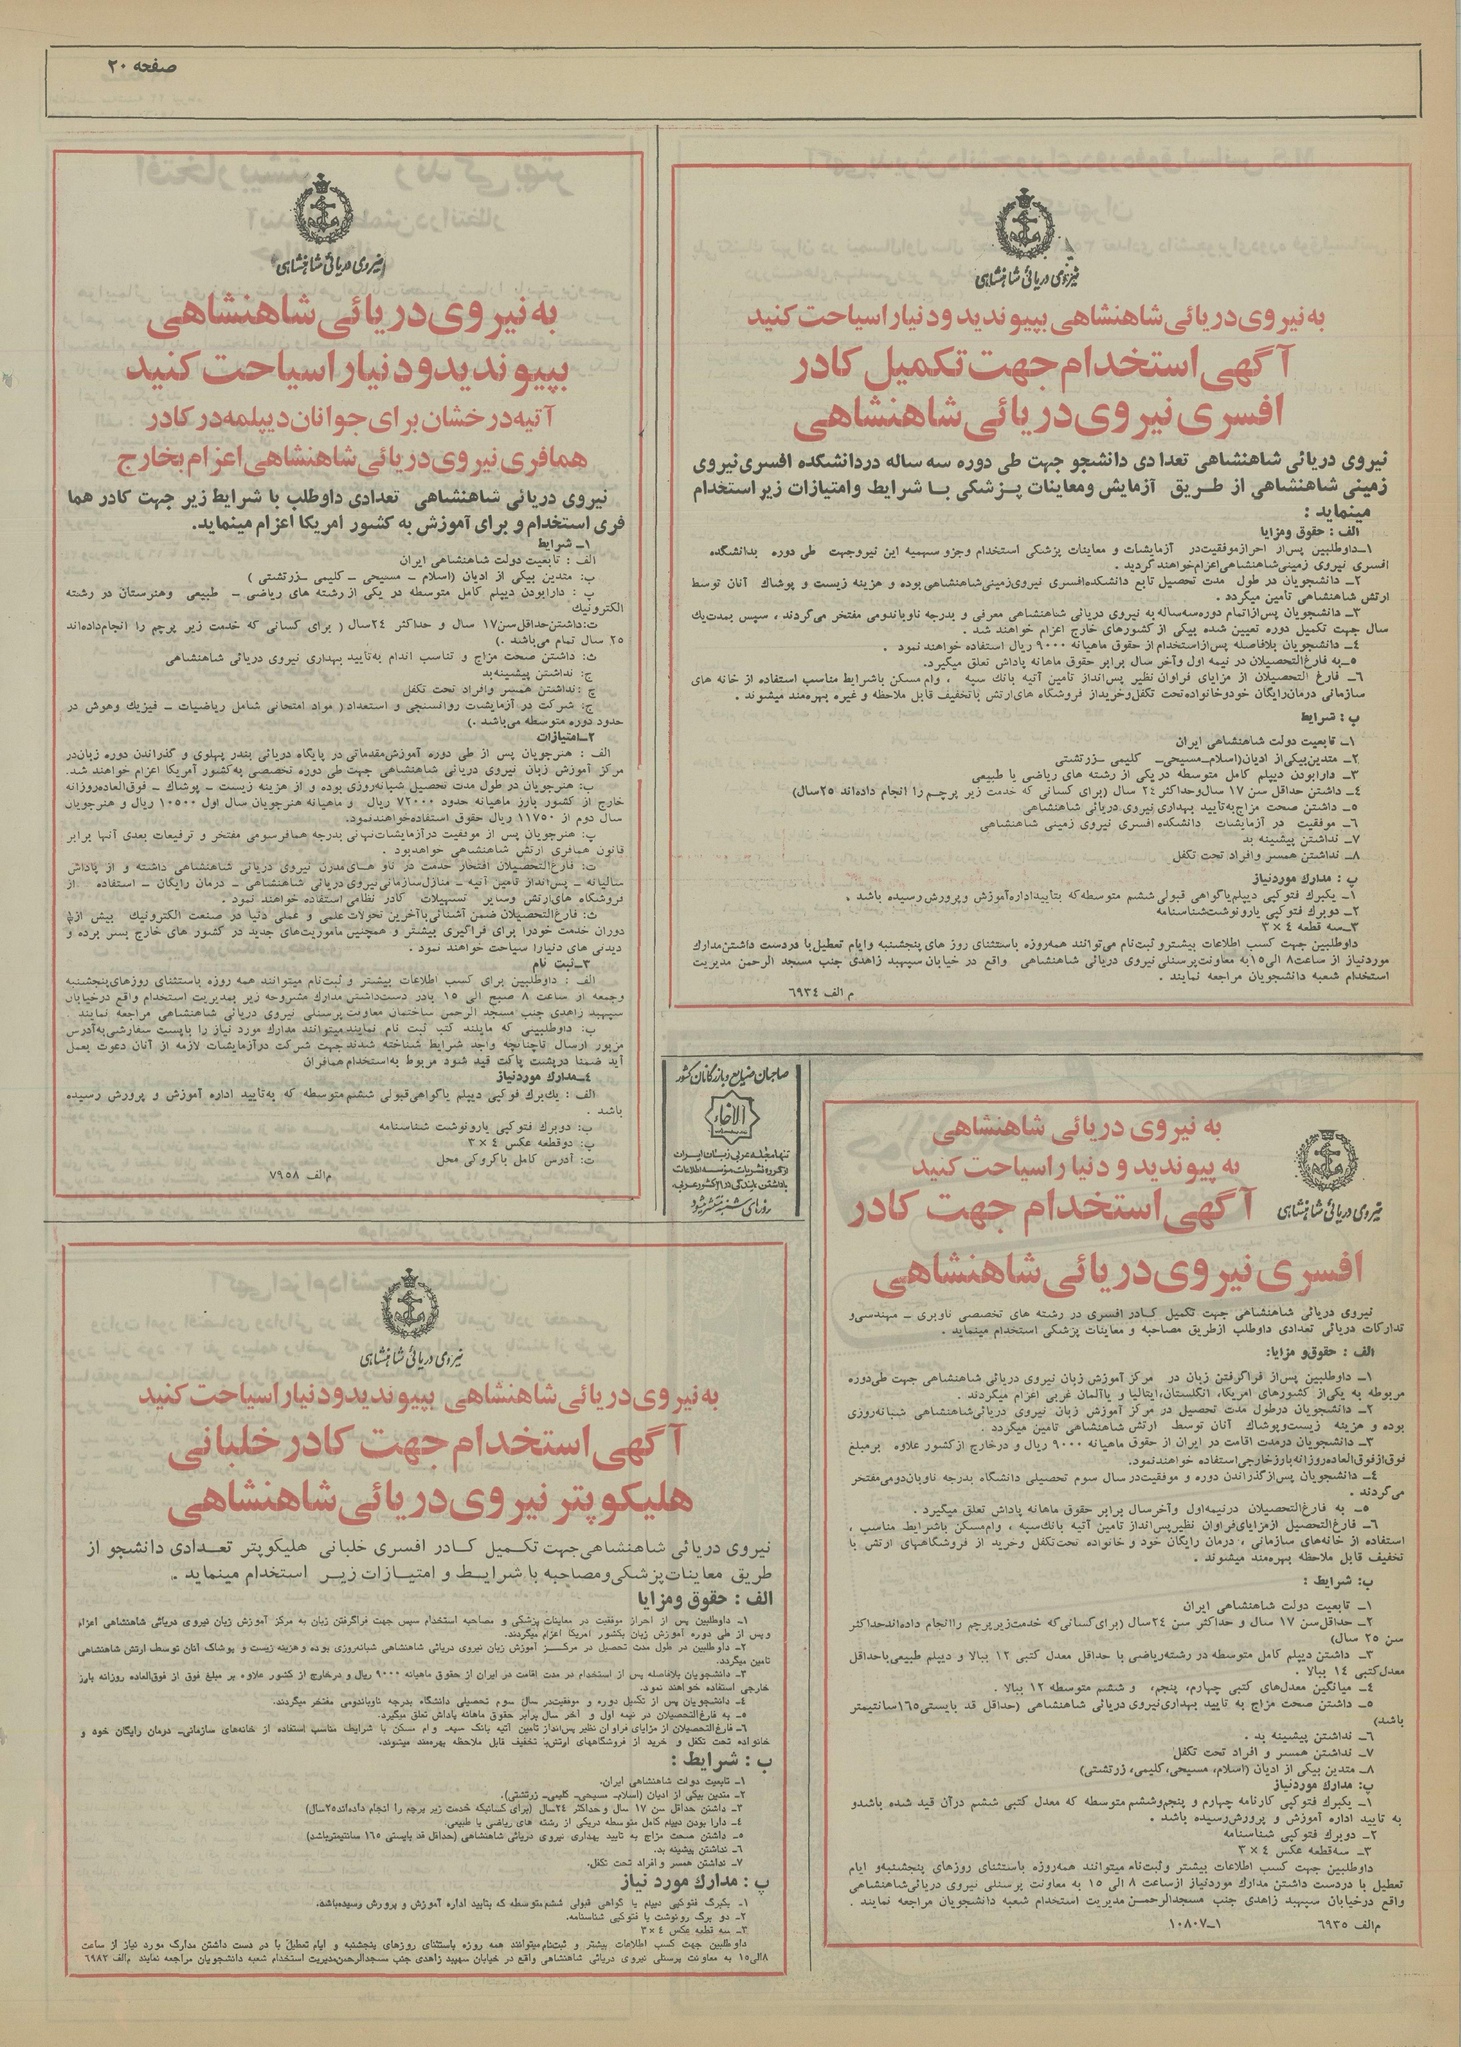 صفحه ۲۰
نیروی دریائی شاهنشاهی
به نیروی دریائی شاهنشاهی بپیوندید و دنیا را سیاحت کنید
آگهی استخدام جهت تکمیل کادر
افسری نیروی دریائی شاهنشاهی
نیروی دریائی شاهنشاهی تعدادی دانشجو جهت طی دوره سه ساله در دانشکده افسری نیروی
زمینی شاهنشاهی از طریق آزمایش و معاینات پزشکی با شرایط و امتیازات زیر استخدام
مینماید :
الف : حقوق و مزایا
۱ـ داوطلبین پس از احراز موفقیت در آزمایشات و معاینات پزشکی استخدام و جزو سهمیه این نیرو جهت طی دوره بدانشکده
افسری نیروی زمینی شاهنشاهی اعزام خواهند گردید .
۲ـ دانشجویان در طول مدت تحصیل تابع دانشکده افسری نیروی زمینی شاهنشاهی بوده و هزینه زیست و پوشاك آنان توسط
ارتش شاهنشاهی تامین میگردد .
۳ـ دانشجویان پس از اتمام دوره سه ساله به نیروی دریائی شاهنشاهی معرفی و بدرجه ناوباندومی مفتخر می‌گردند ، سپس بمدت یك
سال جهت تکمیل دوره تعیین شده بیکی از کشورهای خارج اعزام خواهند شد .
۴ـ دانشجویان بلافاصله پس از استخدام از حقوق ماهیانه ۹۰۰۰ ریال استفاده خواهند نمود .
۵ـ به فارغ‌التحصیلان در نیمه اول و آخر سال برابر حقوق ماهانه پاداش تعلق میگیرد.
۶ـ فارغ التحصیلان از مزایای فراوان نظیر پس‌انداز تامین آتیه بانك سپه ، وام مسکن با شرایط مناسب استفاده از خانه های
سازمانی درمان رایگان خود و خانواده تحت تکفل و خرید از فروشگاه های ارتش با تخفیف قابل ملاحظه و غیره بهره‌مند میشوند .
ب : شرایط
۱ـ تابعیت دولت شاهنشاهی ایران
۲ـ متدین بیکی از ادیان (اسلام ـ مسیحی ـ کلیمی ـ زرتشتی
۳ـ دارا بودن دیپلم کامل متوسطه در یکی از رشته های ریاضی یا طبیعی
۴ـ داشتن حداقل سن ۱۷ سال و حداکثر ۲۴ سال (برای کسانی که خدمت زیر پرچم را انجام داده‌اند ۲۵ سال)
۵ـ داشتن صحت مزاج به تایید بهداری نیروی دریائی شاهنشاهی
۶ـ موفقیت در آزمایشات دانشکده افسری نیروی زمینی شاهنشاهی
۷ـ نداشتن پیشینه بد
۸ـ نداشتن همسر و افراد تحت تکفل
پ : مدارك مورد نیاز
۱ـ یکبرگ فتوکپی دیپلم یا گواهی قبولی ششم متوسطه که بتأیید اداره آموزش و پرورش رسیده باشد .
۲ـ دوبرك فتوکپی یا رونوشت شناسنامه
۳ـ سه قطعه ۴ × ۳
داوطلبین جهت کسب اطلاعات بیشتر و ثبت‌نام می‌توانند همه‌روزه باستثنای روز های پنجشنبه و ایام تعطیل با در دست داشتن مدارك
مورد نیاز از ساعت ۸ الی ۱۵ به معاونت پرسنلی نیروی دریائی شاهنشاهی واقع در خیابان سپهبد زاهدی جنب مسجد الرحمن مدیریت
استخدام شعبه دانشجویان مراجعه نمایند .
م الف ۶۹۳۴
نیروی دریائی شاهنشاهی
به نیروی دریائی شاهنشاهی
بپیوندید و دنیا را سیاحت کنید
آتیه درخشان برای جوانان دیپلمه در کادر
همافری نیروی دریائی شاهنشاهی اعزام بخارج
نیروی دریائی شاهنشاهی تعدادی داوطلب با شرایط زیر جهت کادر هما
فری استخدام و برای آموزش به کشور امریکا اعزام مینماید.
۱ـ شرایط
الف : تابعیت دولت شاهنشاهی ایران
ب: متدین بیکی از ادیان (اسلام ـ مسیحی ـ کلیمی ـ زرتشتی )
پ : دارا بودن دیپلم کامل متوسطه در یکی از رشته های ریاضی ـ طبیعی و هنرستان در رشته
الکترونیك
ت: داشتن حداقل سن ۱۷ سال و حداکثر ۲۴ سال ( برای کسانی که خدمت زیر پرچم را انجام داده‌اند
۲۵ سال تمام می‌باشد .)
ث: داشتن صحت مزاج و تناسب اندام به تایید بهداری نیروی دریائی شاهنشاهی
ج: نداشتن پیشینه بد
چ : نداشتن همسر و افراد تحت تکفل
ح: شرکت در آزمایشات روانسنجی و استعداد ( مواد امتحانی شامل ریاضیات ـ فیزیك و هوش در
حدود دوره متوسطه می‌باشد .)
۲ـ امتیازات
الف : هنرجویان پس از طی دوره آموزش مقدماتی در پایگاه دریائی بندر پهلوی و گذراندن دوره زبان در
مرکز آموزش زبان نیروی دریائی شاهنشاهی جهت طی دوره تخصصی به کشور آمریکا اعزام خواهند شد.
ب: هنرجویان در طول مدت تحصیل شبانه‌روزی بوده و از هزینه زیست ـ پوشاك ـ فوق‌العاده روزانه
خارج از کشور بارز ماهیانه حدود ۷۲۰۰۰ ریال و ماهیانه هنرجویان سال اول ۱۰۵۰۰ ریال و هنرجویان
سال دوم از ۱۱۷۵۰ ریال حقوق استفاده خواهند نمود.
پ: هنرجویان پس از موفقیت در آزمایشات نهیی بدرجه همافر سومی مفتخر و ترفیعات بعدی آنها برابر
قانون همافری ارتش شاهنشاهی خواهد بود .
ت: فارغ‌التحصیلان افتخار خدمت در ناو های مدرن نیروی دریائی شاهنشاهی داشته و از پاداش
سالیانه ـ پس‌انداز تامین آتیه ـ منازل سازمانی نیروی دریائی شاهنشاهی ـ درمان رایگان ـ استفاده از
فروشگاه های ارتش و سایر تسهیلات کادر نظامی استفاده خواهند نمود .
ث: فارغ‌التحصیلان ضمن آشنائی با آخرین تحولات علمی و عملی دنیا در صنعت الکترونیك بیش از
دوران خدمت خود را برای فراگیری بیشتر و همچنین ماموریت‌های جدید در کشور های خارج بسر برده و
دیدنی های دنیا را سیاحت خواهند نمود .
۳ـ ثبت نام
الف : داوطلبین برای کسب اطلاعات بیشتر و ثبت‌نام میتوانند همه روزه باستثنای روزهای پنجشنبه
و جمعه از ساعت ۸ صبح الی ۱۵ با در دست داشتن مدارك مشروحه زیر بمدیریت استخدام واقع در خیابان
سپهبد زاهدی جنب مسجد الرحمن ساختمان معاونت پرسنلی نیروی دریائی شاهنشاهی مراجعه نمایند
ب: داوطلبینی که مایلند کتبا ثبت نام نمایند میتوانند مدارك مورد نیاز را با پست سفارشی به آدرس
مزبور ارسال تا چنانچه واجد شرایط شناخته شدند جهت شرکت در آزمایشات لازمه از آنان دعوت بعمل
آید ضمنا در پشت پاکت قید شود مربوط به استخدام همافران
۴ـ مدارك مورد نیاز
الف : یك برك فوکپی دیپلم یا گواهی قبولی ششم متوسطه که به تایید اداره آموزش و پرورش رسیده
باشد .
ب: دوبرك فتوکپی یا رونوشت شناسنامه
پ: دو قطعه عکس ۴ × ۳
ت: آدرس کامل با کروکی محل
م الف ۷۹۵۸
صاحبان صنایع و بازرگانان کشور
الاخاء
تنها مجله عربی زبان ایران
از گروه نشریات موسسه اطلاعات
با داشتن نمایندگی در ۲۱ کشور عربی
روزهای شنبه منتشر میشود
نیروی دریائی شاهنشاهی
به نیروی دریائی شاهنشاهی
به پیوندید و دنیا را سیاحت کنید
آگهی استخدام جهت کادر
افسری نیروی دریائی شاهنشاهی
نیروی دریائی شاهنشاهی جهت تکمیل کادر افسری در رشته های تخصصی ناوبری ـ مهندسی و
تدارکات دریائی تعدادی داوطلب از طریق مصاحبه و معاینات پزشکی استخدام مینماید .
الف : حقوق و مزایا:
۱ـ داوطلبین پس از فراگرفتن زبان در مرکز آموزش زبان نیروی دریائی شاهنشاهی جهت طی دوره
مربوطه به یکی از کشورهای امریکا، انگلستان، ایتالیا و یا آلمان غربی اعزام میگردند .
۲ـ دانشجویان در طول مدت تحصیل در مرکز آموزش زبان نیروی دریائی شاهنشاهی شبانه‌روزی
بوده و هزینه زیست و پوشاك آنان توسط ارتش شاهنشاهی تامین میگردد .
۳ـ دانشجویان در مدت اقامت در ایران از حقوق ماهیانه ۹۰۰۰ ریال و در خارج از کشور علاوه بر مبلغ
فوق از فوق‌العاده روزانه بارز خارجی استفاده خواهند نمود.
۴ـ دانشجویان پس از گذراندن دوره و موفقیت در سال سوم تحصیلی دانشگاه بدرجه ناوبان دومی مفتخر
می‌گردند .
۵ـ به فارغ‌التحصیلان در نیمه اول و آخر سال برابر حقوق ماهانه پاداش تعلق میگیرد .
۶ـ فارغ‌التحصیل از مزایای فراوان نظیر پس‌انداز تامین آتیه بانك سپه ، وام مسکن با شرایط مناسب ،
استفاده از خانه‌های سازمانی ، درمان رایگان خود و خانواده تحت تکفل و خرید از فروشگاههای ارتش با
تخفیف قابل ملاحظه بهره‌مند میشوند .
ب: شرایط :
۱ـ تابعیت دولت شاهنشاهی ایران
۲ـ حداقل سن ۱۷ سال و حداکثر سن ۲۴ سال (برای کسانی که خدمت زیر پرچم را انجام داده‌اند حداکثر
سن ۲۵ سال)
۳ـ داشتن دیپلم کامل متوسطه در رشته ریاضی با حداقل معدل کتبی ۱۲ ببالا و دیپلم طبیعی با حداقل
معدل کتبی ۱۴ ببالا .
۴ـ میانگین معدل‌های کتبی چهارم، پنجم، و ششم متوسطه ۱۲ ببالا .
۵ـ داشتن صحت مزاج به تایید بهداری نیروی دریائی شاهنشاهی (حداقل قد بایستی ۱۶۵ سانتیمتر
باشد)
۶ـ نداشتن پیشینه بد .
۷ـ نداشتن همسر و افراد تحت تکفل
۸ـ متدین بیکی از ادیان (اسلام، مسیحی، کلیمی، زرتشتی)
پ: مدارك مورد نیاز
۱ـ یکبرك فتوکپی کارنامه چهارم و پنجم و ششم متوسطه که معدل کتبی ششم در آن قید شده باشد و
به تایید اداره آموزش و پرورش رسیده باشد .
۲ـ دوبرك فتوکپی شناسنامه
۳ـ سه قطعه عکس ۴ × ۳
داوطلبین جهت کسب اطلاعات بیشتر و ثبت‌نام میتوانند همه‌روزه باستثنای روزهای پنجشنبه و ایام
تعطیل با در دست داشتن مدارك مورد نیاز از ساعت ۸ الی ۱۵ به معاونت پرسنلی نیروی دریائی شاهنشاهی
واقع در خیابان سپهبد زاهدی جنب مسجد الرحمن مدیریت استخدام شعبه دانشجویان مراجعه نمایند .
م الف ۶۹۳۵ ۱ـ۱۰۸۰۷
نیروی دریائی شاهنشاهی
به نیروی دریائی شاهنشاهی بپیوندید و دنیا را سیاحت کنید
آگهی استخدام جهت کادر خلبانی
هلیکوپتر نیروی دریائی شاهنشاهی
نیروی دریائی شاهنشاهی جهت تکمیل کادر افسری خلبانی هلیکوپتر تعدادی دانشجو از
طریق معاینات پزشکی و مصاحبه با شرایط و امتیازات زیر استخدام مینماید .
الف : حقوق و مزایا
۱ـ داوطلبین پس از احراز موفقیت در معاینات پزشکی و مصاحبه استخدام سپس جهت فراگرفتن زبان به مرکز آموزش زبان نیروی دریائی شاهنشاهی اعزام
و پس از طی دوره آموزش زبان بکشور امریکا اعزام میگردند.
۲ـ داوطلبین در طول مدت تحصیل در مرکز آموزش زبان نیروی دریائی شاهنشاهی شبانه‌روزی بوده و هزینه زیست و پوشاك آنان توسط ارتش شاهنشاهی
تامین میگردد.
۳ـ دانشجویان بلافاصله پس از استخدام در مدت اقامت در ایران از حقوق ماهیانه ۹۰۰۰ ریال و در خارج از کشور علاوه بر مبلغ فوق از فوق‌العاده روزانه بارز
خارجی استفاده خواهند نمود.
۴ـ دانشجویان پس از تکمیل دوره و موفقیت در سال سوم تحصیلی دانشگاه بدرجه ناوباندومی مفتخر میگردند.
۵ـ به فارغ‌التحصیلان در نیمه اول و آخر سال برابر حقوق ماهانه پاداش تعلق میگیرد.
۶ـ فارغ‌التحصیلان از مزایای فراوان نظیر پس‌انداز تامین آتیه بانک سپه وام مسکن با شرایط مناسب استفاده از خانه‌های سازمانی ـ درمان رایگان خود و
خانواده تحت تکفل و خرید از فروشگاههای ارتش با تخفیف قابل ملاحظه بهره‌مند میشوند.
ب : شرایط :
۱ـ تابعیت دولت شاهنشاهی ایران.
۲ـ متدین بیکی از ادیان (اسلام ـ مسیحی ـ کلیمی ـ زرتشتی).
۳ـ داشتن حداقل سن ۱۷ سال و حداکثر ۲۴ سال (برای کسانیکه خدمت زیر پرچم را انجام داده‌اند ۲۵ سال)
۴ـ دارا بودن دیپلم کامل متوسطه در یکی از رشته های ریاضی یا طبیعی.
۵ـ داشتن صحت مزاج به تایید بهداری نیروی دریائی شاهنشاهی (حداقل قد بایستی ۱۶۵ سانتیمتر باشد)
۶ـ نداشتن پیشینه بد.
۷ـ نداشتن همسر و افراد تحت تکفل.
پ : مدارك مورد نیاز
۱ـ یکبرگ فتوکپی دیپلم یا گواهی قبولی ششم متوسطه که بتایید اداره آموزش و پرورش رسیده باشد.
۲ـ دو برگ رونوشت یا فتوکپی شناسنامه.
۳ـ سه قطعه عکس ۴ × ۳
داوطلبین جهت کسب اطلاعات بیشتر و ثبت‌نام میتوانند همه روزه باستثنای روزهای پنجشنبه و ایام تعطیل با در دست داشتن مدارک مورد نیاز از ساعت
۸ الی ۱۵ به معاونت پرسنلی نیروی دریائی شاهنشاهی واقع در خیابان سپهبد زاهدی جنب مسجد الرحمن مدیریت استخدام شعبه دانشجویان مراجعه نمایند م الف ۶۹۸۳